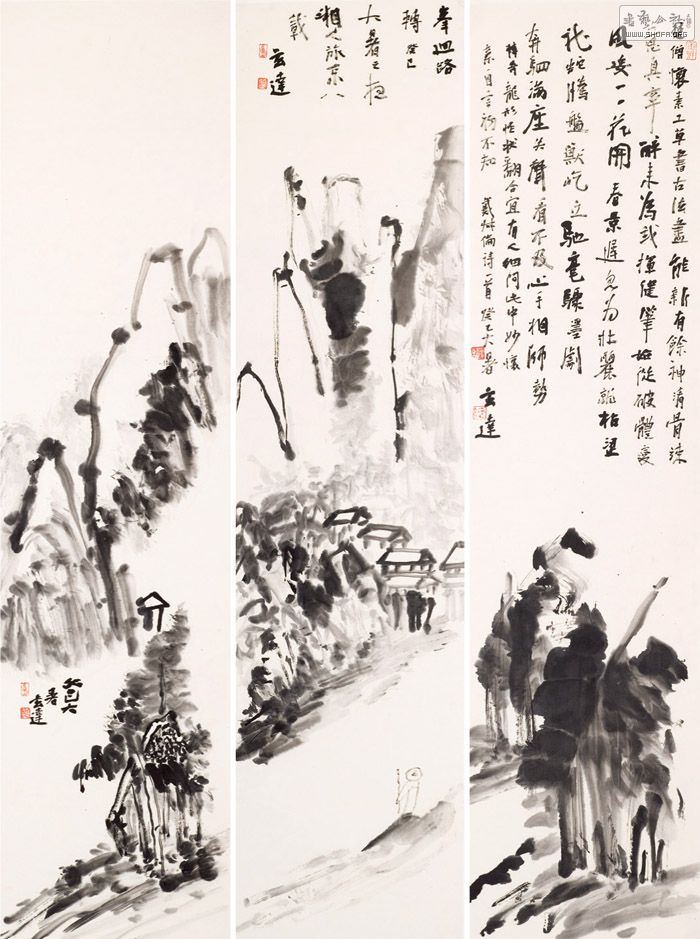 僧懷素工草書古法盡能新有餘神清骨竦
意真率醉來為我揮健筆始從破體變
風姿一一花開春景遲忽為壯麗就枯澀
龍蛇騰盤獸屹立馳毫驟墨劇
奔駟滿座失聲看不及心手相師勢
轉奇形怪狀翻合宜有人細問此中妙懷
素自言初不知 戴叔倫詩一首 癸巳大暑
玄達
峯迴路
轉 癸巳
大暑之
湘人旅京八
載
玄達
癸巳大
暑
玄達
WWW.SHUFA.ORG